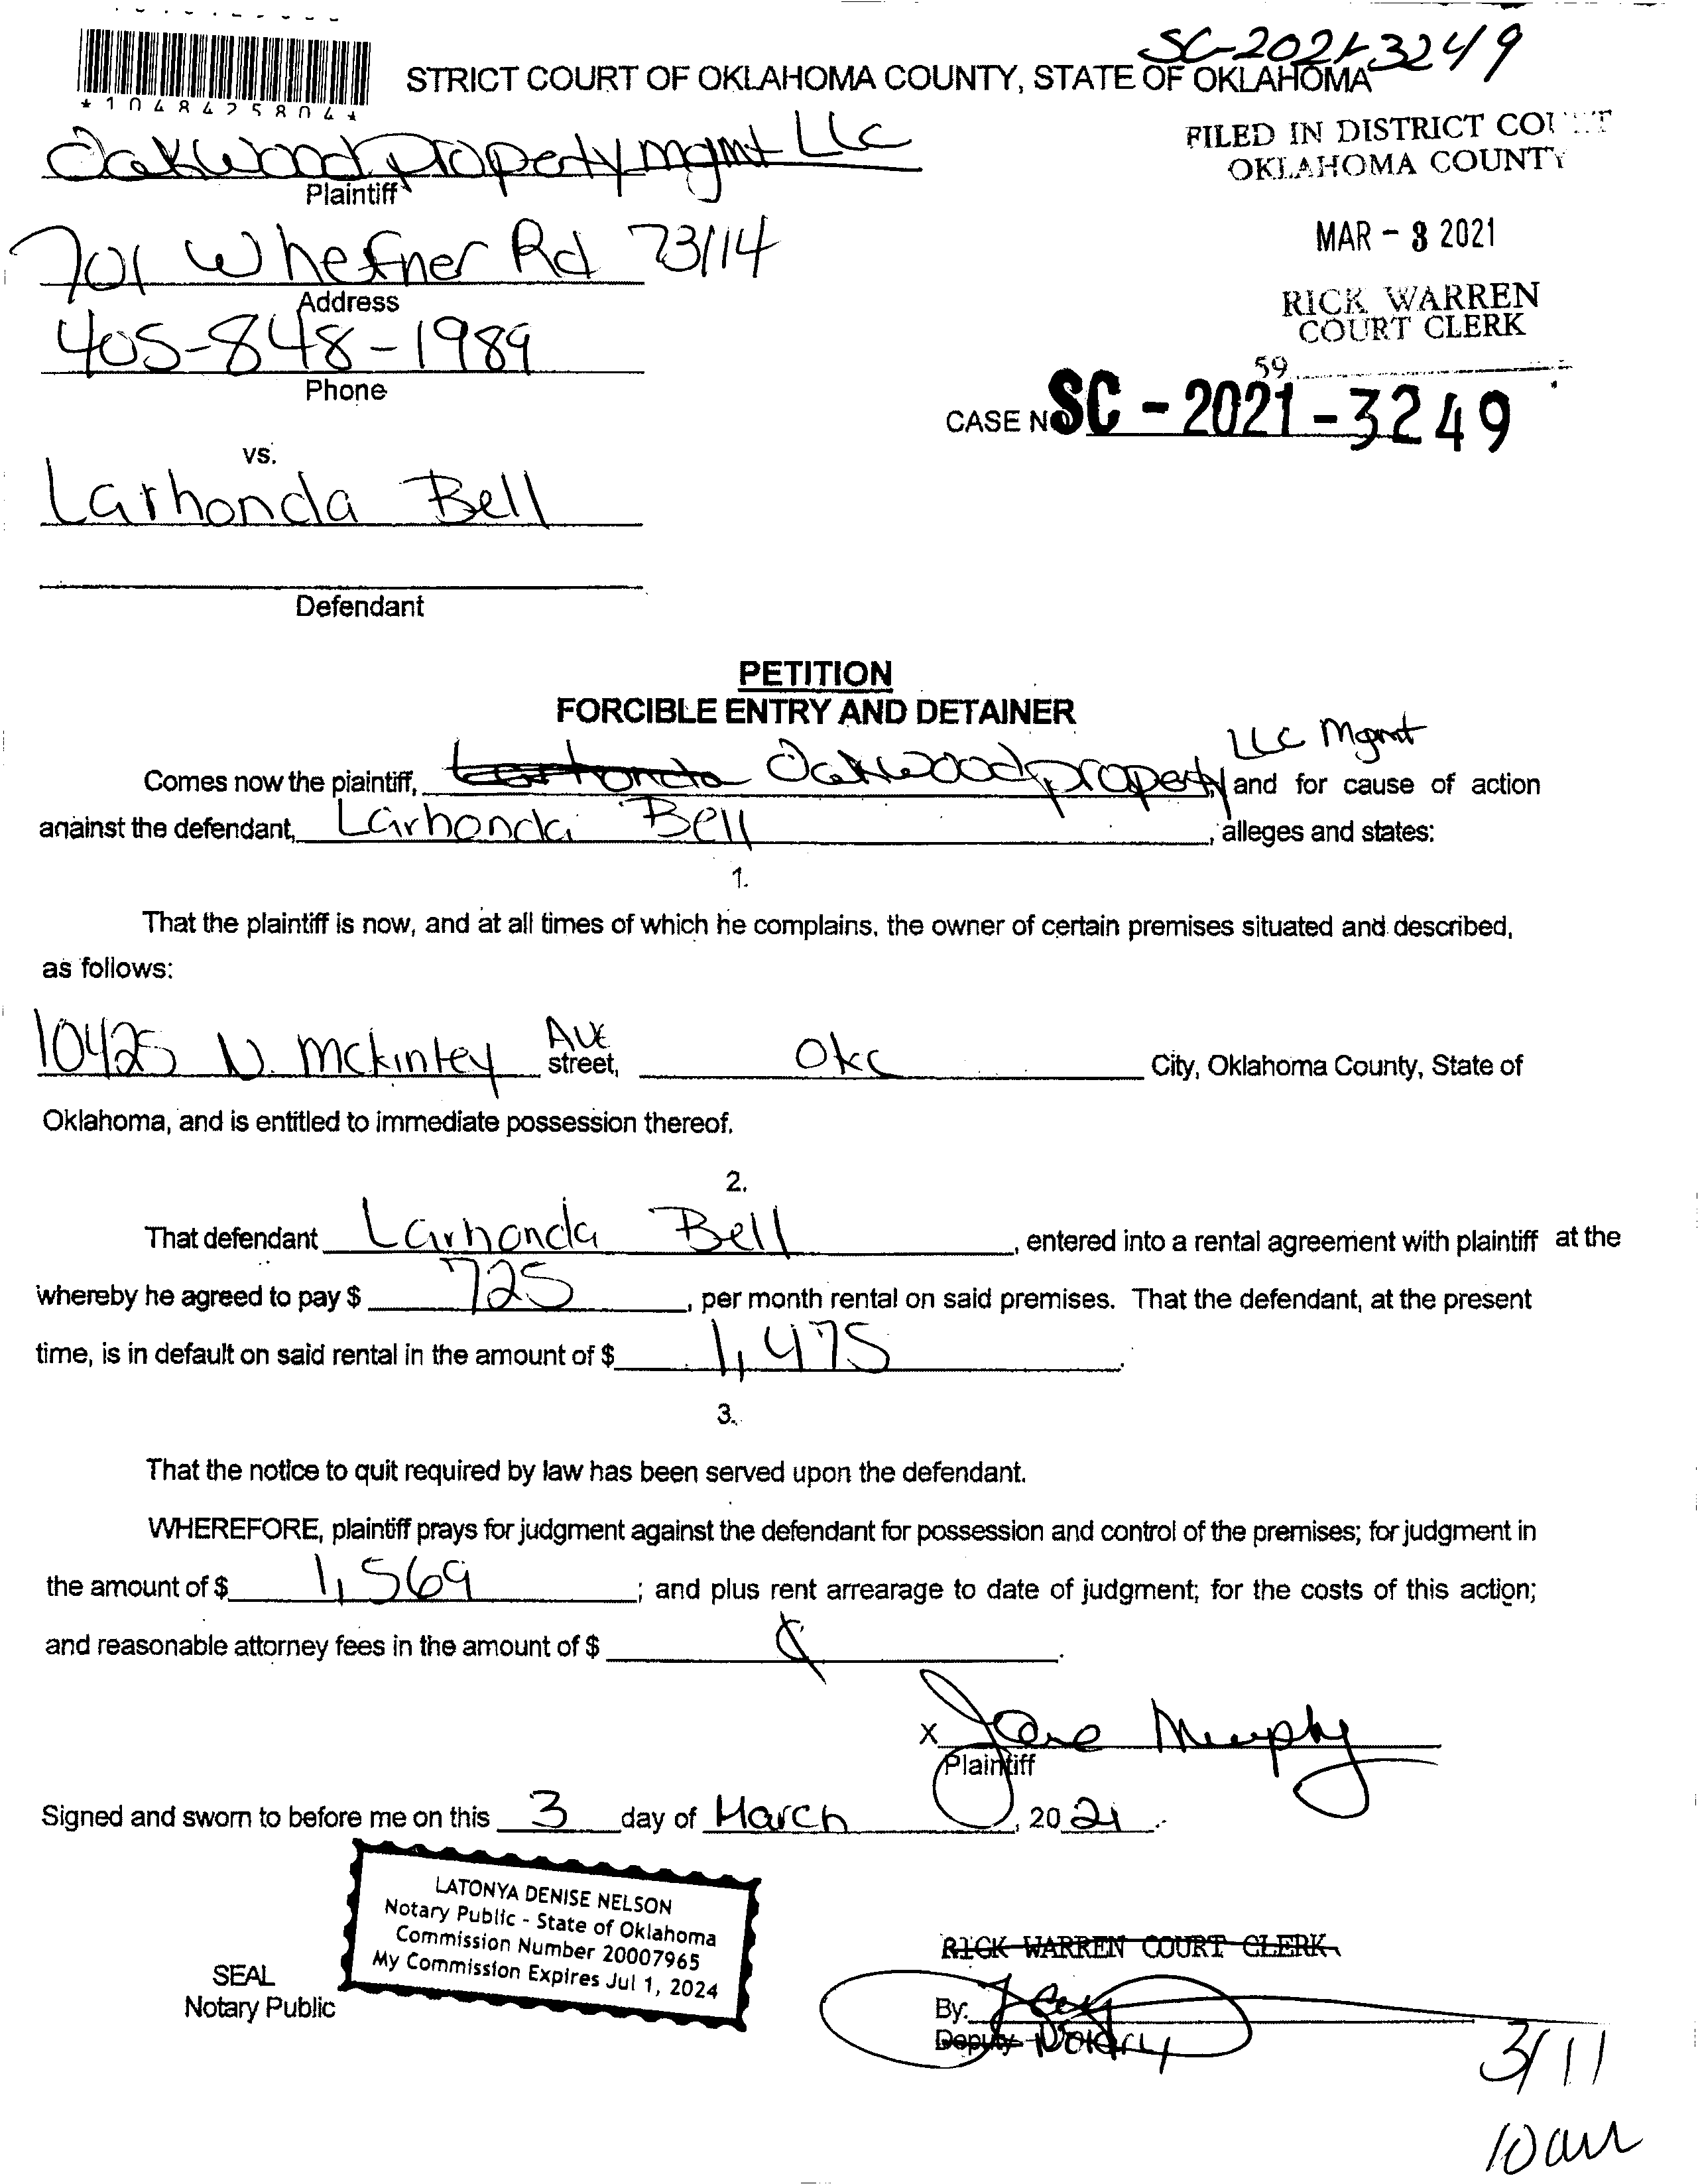 SC-2021-3249
STRICT COURT OF OKLAHOMA COUNTY, STATE OF OKLAHOMA
*1048425804*
Oakwood Property mgmt LLC
Plaintiff
FILED IN DISTRICT COURT
OKLAHOMA COUNTY
701 W hefner Rd 73114
Address
MAR - 3 2021
405-848-1989
Phone
RICK WARREN
COURT CLERK
59
CASE NO SC - 2021 - 3249
vs.
Larhonda Bell
Defendant
PETITION
FORCIBLE ENTRY AND DETAINER
LLC Mgmt
Comes now the plaintiff, Larhonda Oakwood property, and for cause of action
against the defendant, Larhonda Bell, alleges and states:
1.
That the plaintiff is now, and at all times of which he complains, the owner of certain premises situated and described,
as follows:
10425 N. Mckinley Ave street, OKC City, Oklahoma County, State of
Oklahoma, and is entitled to immediate possession thereof.
2.
That defendant Larhonda Bell, entered into a rental agreement with plaintiff at the
whereby he agreed to pay $ 725, per month rental on said premises. That the defendant, at the present
time, is in default on said rental in the amount of $ 1,475.
3.
That the notice to quit required by law has been served upon the defendant.
WHEREFORE, plaintiff prays for judgment against the defendant for possession and control of the premises; for judgment in
the amount of $ 1,569; and plus rent arrearage to date of judgment; for the costs of this action;
and reasonable attorney fees in the amount of $ .
X Jane Murphy
Plaintiff
Signed and sworn to before me on this 3 day of March, 2021.
LATONYA DENISE NELSON
Notary Public - State of Oklahoma
Commission Number 20007965
My Commission Expires Jul 1, 2024
SEAL
Notary Public
RICK WARREN COURT CLERK
By:
Deputy Notary
3/11
10am